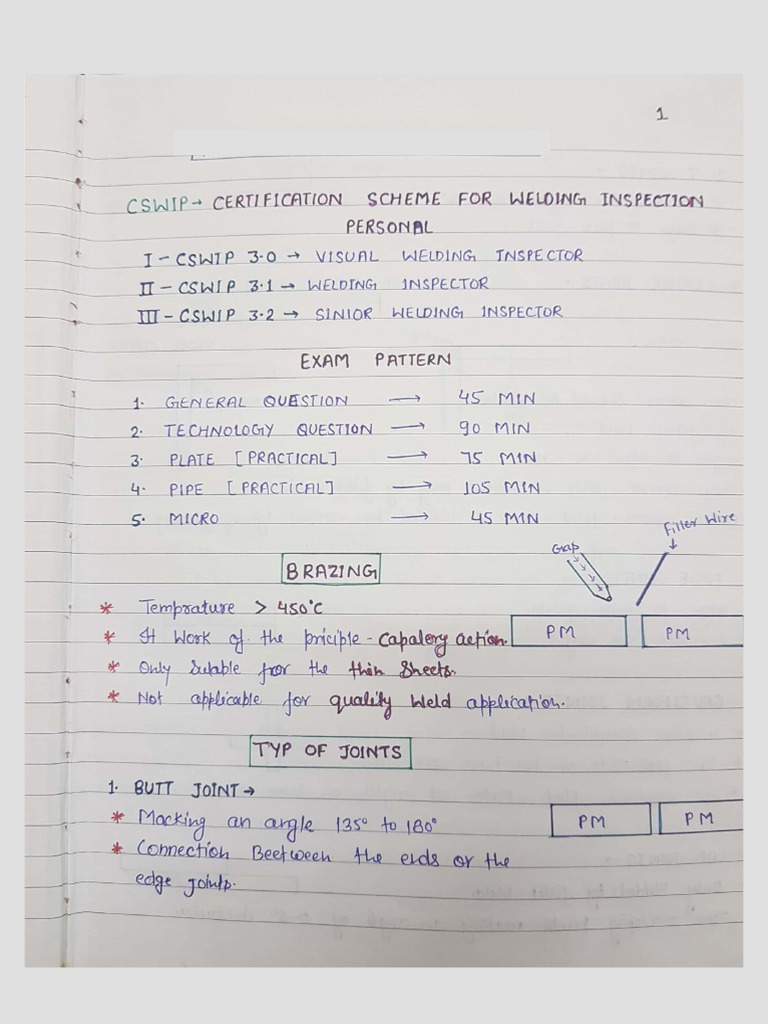 1
CSWIP → CERTIFICATION SCHEME FOR WELDING INSPECTION
PERSONAL
I - CSWIP 3.0 → VISUAL WELDING INSPECTOR
II - CSWIP 3.1 → WELDING INSPECTOR
III - CSWIP 3.2 → SINIOR WELDING INSPECTOR
EXAM PATTERN
1. GENERAL QUESTION → 45 MIN
2. TECHNOLOGY QUESTION → 90 MIN
3. PLATE [PRACTICAL] → 75 MIN
4. PIPE [PRACTICAL] → 105 MIN
5. MICRO → 45 MIN
Filler Wire
Gap
BRAZING
* Temprature > 450°C
* It Work of the priciple - Capalery action.
PM PM
* Only Sutable for the thin Sheets.
* Not applicable for quality Weld application.
TYP OF JOINTS
1. BUTT JOINT →
* Macking an angle 135° to 180°
PM PM
* Connection Beetween the ends or the
edge joints.